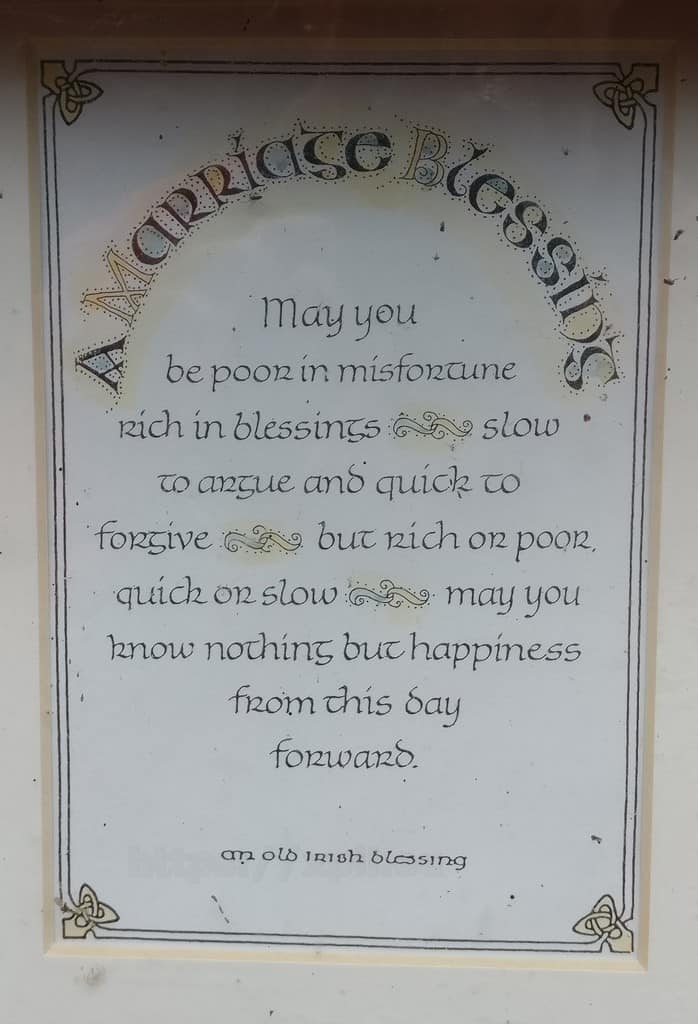 A Marriage Blessing
May you
be poor in misfortune
rich in blessings slow
to argue and quick to
forgive but rich or poor,
quick or slow may you
know nothing but happiness
from this day
forward.
an old irish blessing